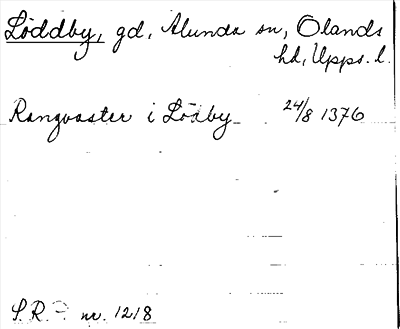 Löddby, gd, Alunda sn, Olands
hd, Upps. l.
Rangvaster i Lödby 24/8 1376
S.R. nr. 1218